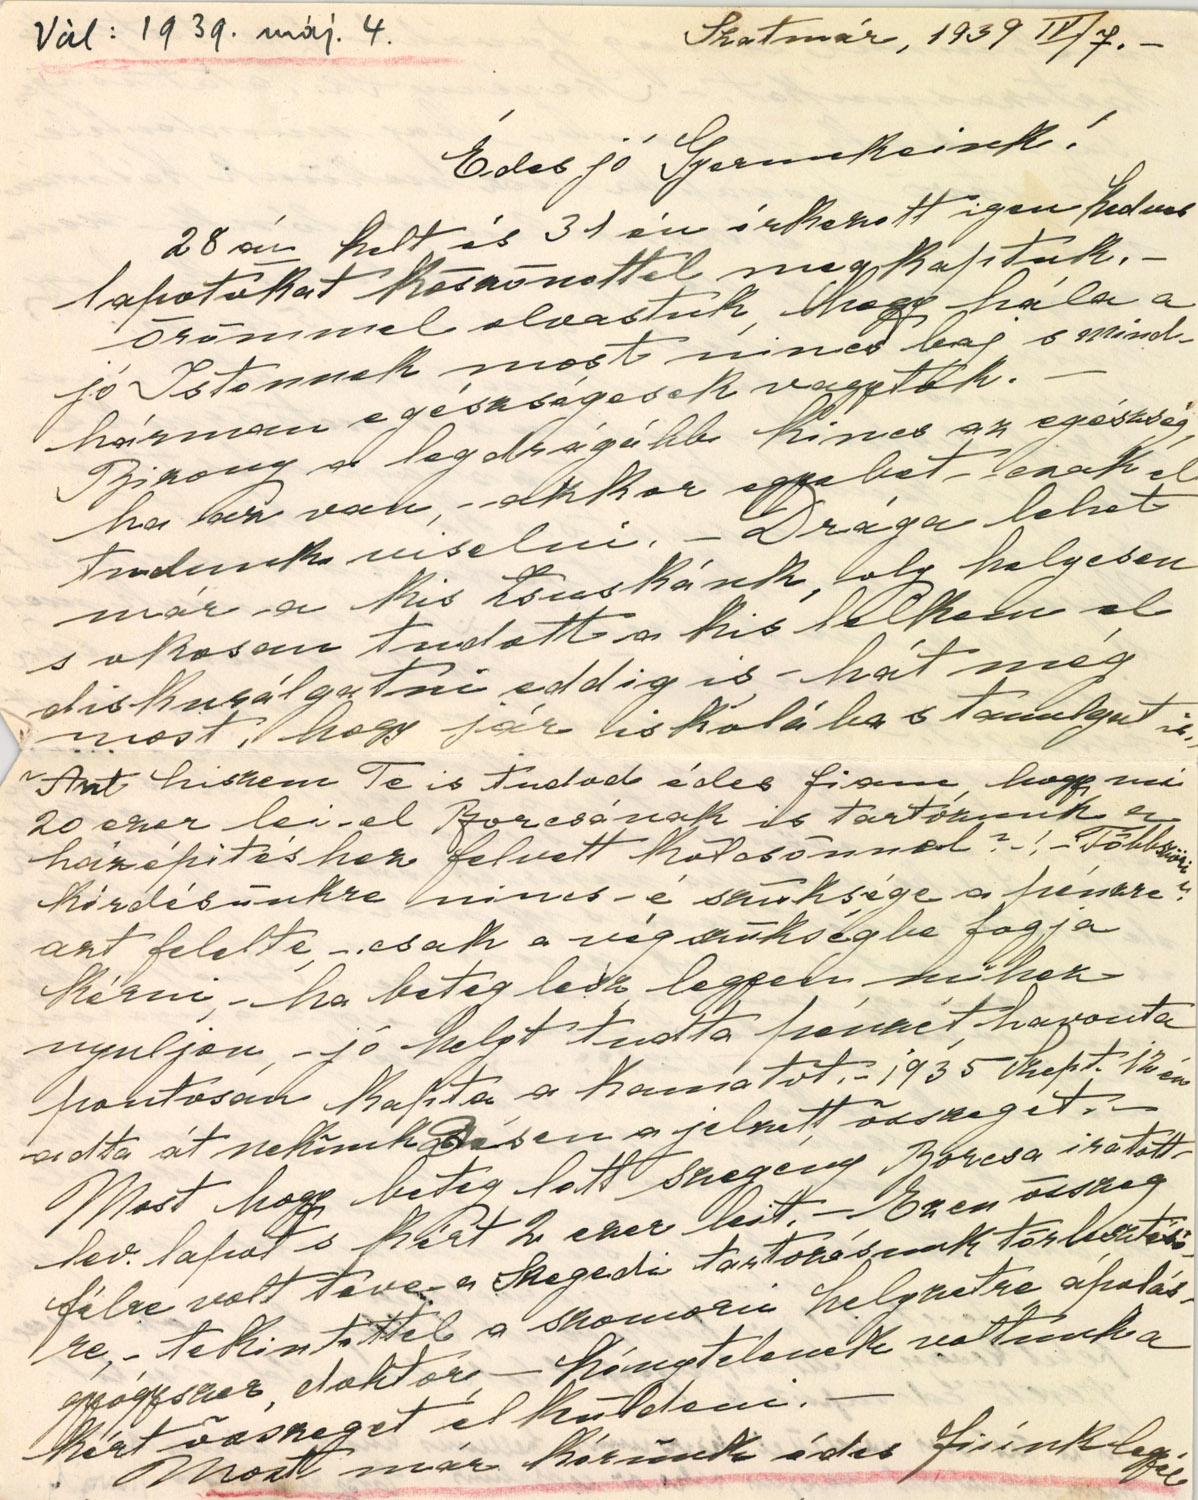 Vál: 1939. máj. 4.
Szatmár, 1939 IV/7. –
Édes jó Gyermekeink!
28 án kelt és 31 én érkezett igen kedves
lapotokat köszönettel megkaptuk. –
Örömmel olvastuk, hogy hála a
jó Istennek most nincs baj s mind-
hárman egészségesek vagytok. –
Bizony a legdrágább kincs az egészség,
ha az van, – akkor egyebet – csak el
tudunk viselni. – Drága lehet
már a kis Zsuskánk, oly helyesen
s okosan tudott a kis lelkem el
diskurálgatni eddig is – hát még
most, hogy jár iskolába s tanulgat is.
Azt hiszem Te is tudod édes fiam, hogy mi
20 ezer lei-el Borcsának is tartozunk a
házépitéshez felvett kölcsönnel? – ! – Többszöri
kérdésünkre nincs-é szüksége a pénzre?
azt felelte, – csak a végszükségbe fogja
kérni, – ha beteg lesz, legyen mihez
nyuljon, – jó helyt tudta pénzét, havonta
pontosan kapta a kamatot. – 1935 szept. 12 én
adta át nekünk Désen a jelzett összeget. –
Most hogy beteg lett szegény Borcsa iratott
lev. lapot s kért 2 ezer leit. – Ezen összeg
félre volt téve a Szegedi tartozásunk törlesztésé-
re, – tekintettel a szomorú helyzetre ápolás,
gyógyszer, doktor, – kénytelenek voltunk a
kért összeget elküldeni. –
Most már kérünk édes Fiunk légy